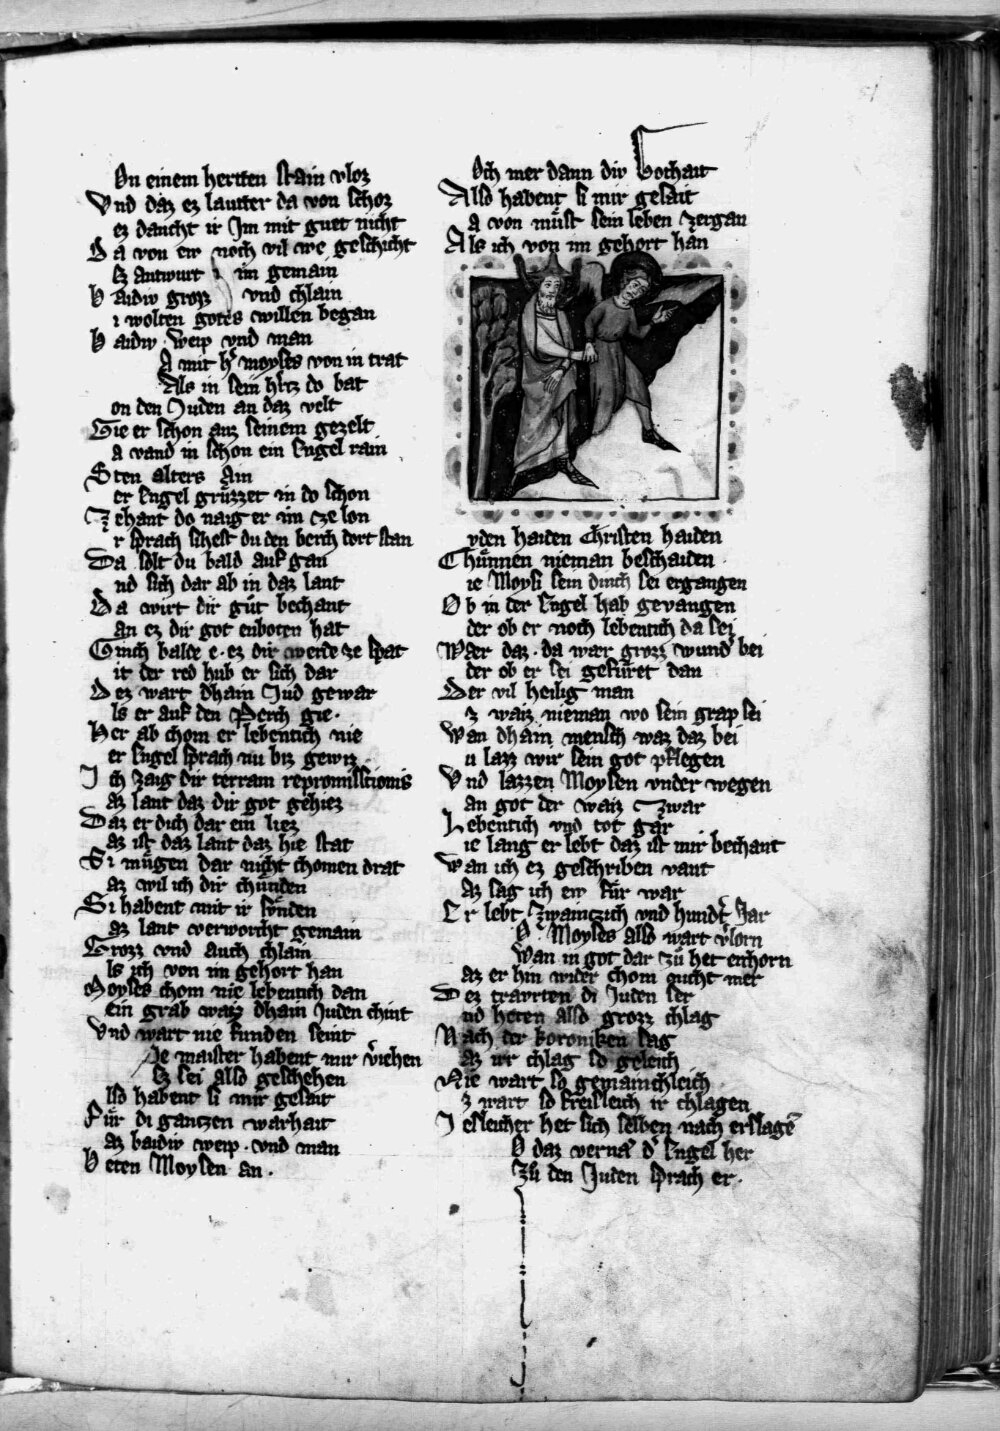 On einem hertten stain vloz
Vnd daz ez lautter da von schoz
ez daucht ir Im mit guet nicht
Da von ew noch vil we geschicht
Ez antwurt im gemain
Haidiv grozz vnd chlain
i wolten gotes willen began
Haidiv weip vnd man
A mit hˢ moyses von in trat
Als in sein hertz do bat
on den Juden an daz velt
Gie er schon auz seinem gezelt
a vand in schon ein Engel rain
Sten alters Ain
er Engel grůzzet in do schon
Zehant do naig er im cze lon
r sprach sihest du den berch dort stan
Da solt du bald auf gan
nd sich dar ab in daz lant
Da wirt dir gůt bechant
an ez dir got enboten hat
Ginch balde e. ez dir werde ze spat
it der red hub er sich dar
Dez wart dhain Jud gewar
ls er auf den Perch gie.
Her ab chom er lebentich nie
er Engel sprach nu biz gewiz
Ich zaig dir terram repromissionis
az lant daz dir got gehiez
Daz er dich dar ein liez
az ist daz lant daz hie stat
Si můgen dar nicht chomen drat
az wil ich dir chůnden
Si habent mit ir sůnden
az lant verworcht gemain
Grozz vnd auch chlain
ls ich von im gehort han
Moyses chom nie lebentich dan
ein grab waiz dhain Juden chint
Vnd wart nie funden seint
Ie maister habent mir v̓iehen
Ez sei also geschehen
lso habent si mir gesait
Fůr di gantzen warhait
az baidiv weip . vnd man
Heten Moysen an .
Och mer dann div bochait
Also habent si mir gesait
a von můst sein leben zergan
Als ich von im gehort han
vden haiden Christen haiden
Chůnnen nieman beschaiden
ie Moysi sein dinch sei ergangen
Ob in der Engel hab gevangen
der ob er noch lebentich da sei
Wær daz . da wær grozz wundˢ bei
der ob er sei gefůret dan
Der vil heilig man
z waiz nieman wo sein grap sei
Wan dhain mensch waz daz bei
u lazz wir sein got pflegen
Vnd lazzen Moysen vnder wegen
an got der waiz Zwar
Lebentich vnd tot gar
ie lang er lebt daz ist mir bechant
Wan ich ez geschriben vant
az sag ich ew fůr war
Er lebt Zwainczich vnd hundt Jar
O Moyses also wart v̓lorn
Wan in got dar zů het erchorn
az er hin wider chom nicht mer
Dez travrten di Juden ser
nd heten also grozz chlag
Nach der koroniken sag
az nie chlag so geleich
Nie wart so gemainchleich
z wart so freisleich ir chlagen
Iesleicher het sich selben nach erslagē
O daz verna dˢ Engel her
Zů den Juden sprach er.